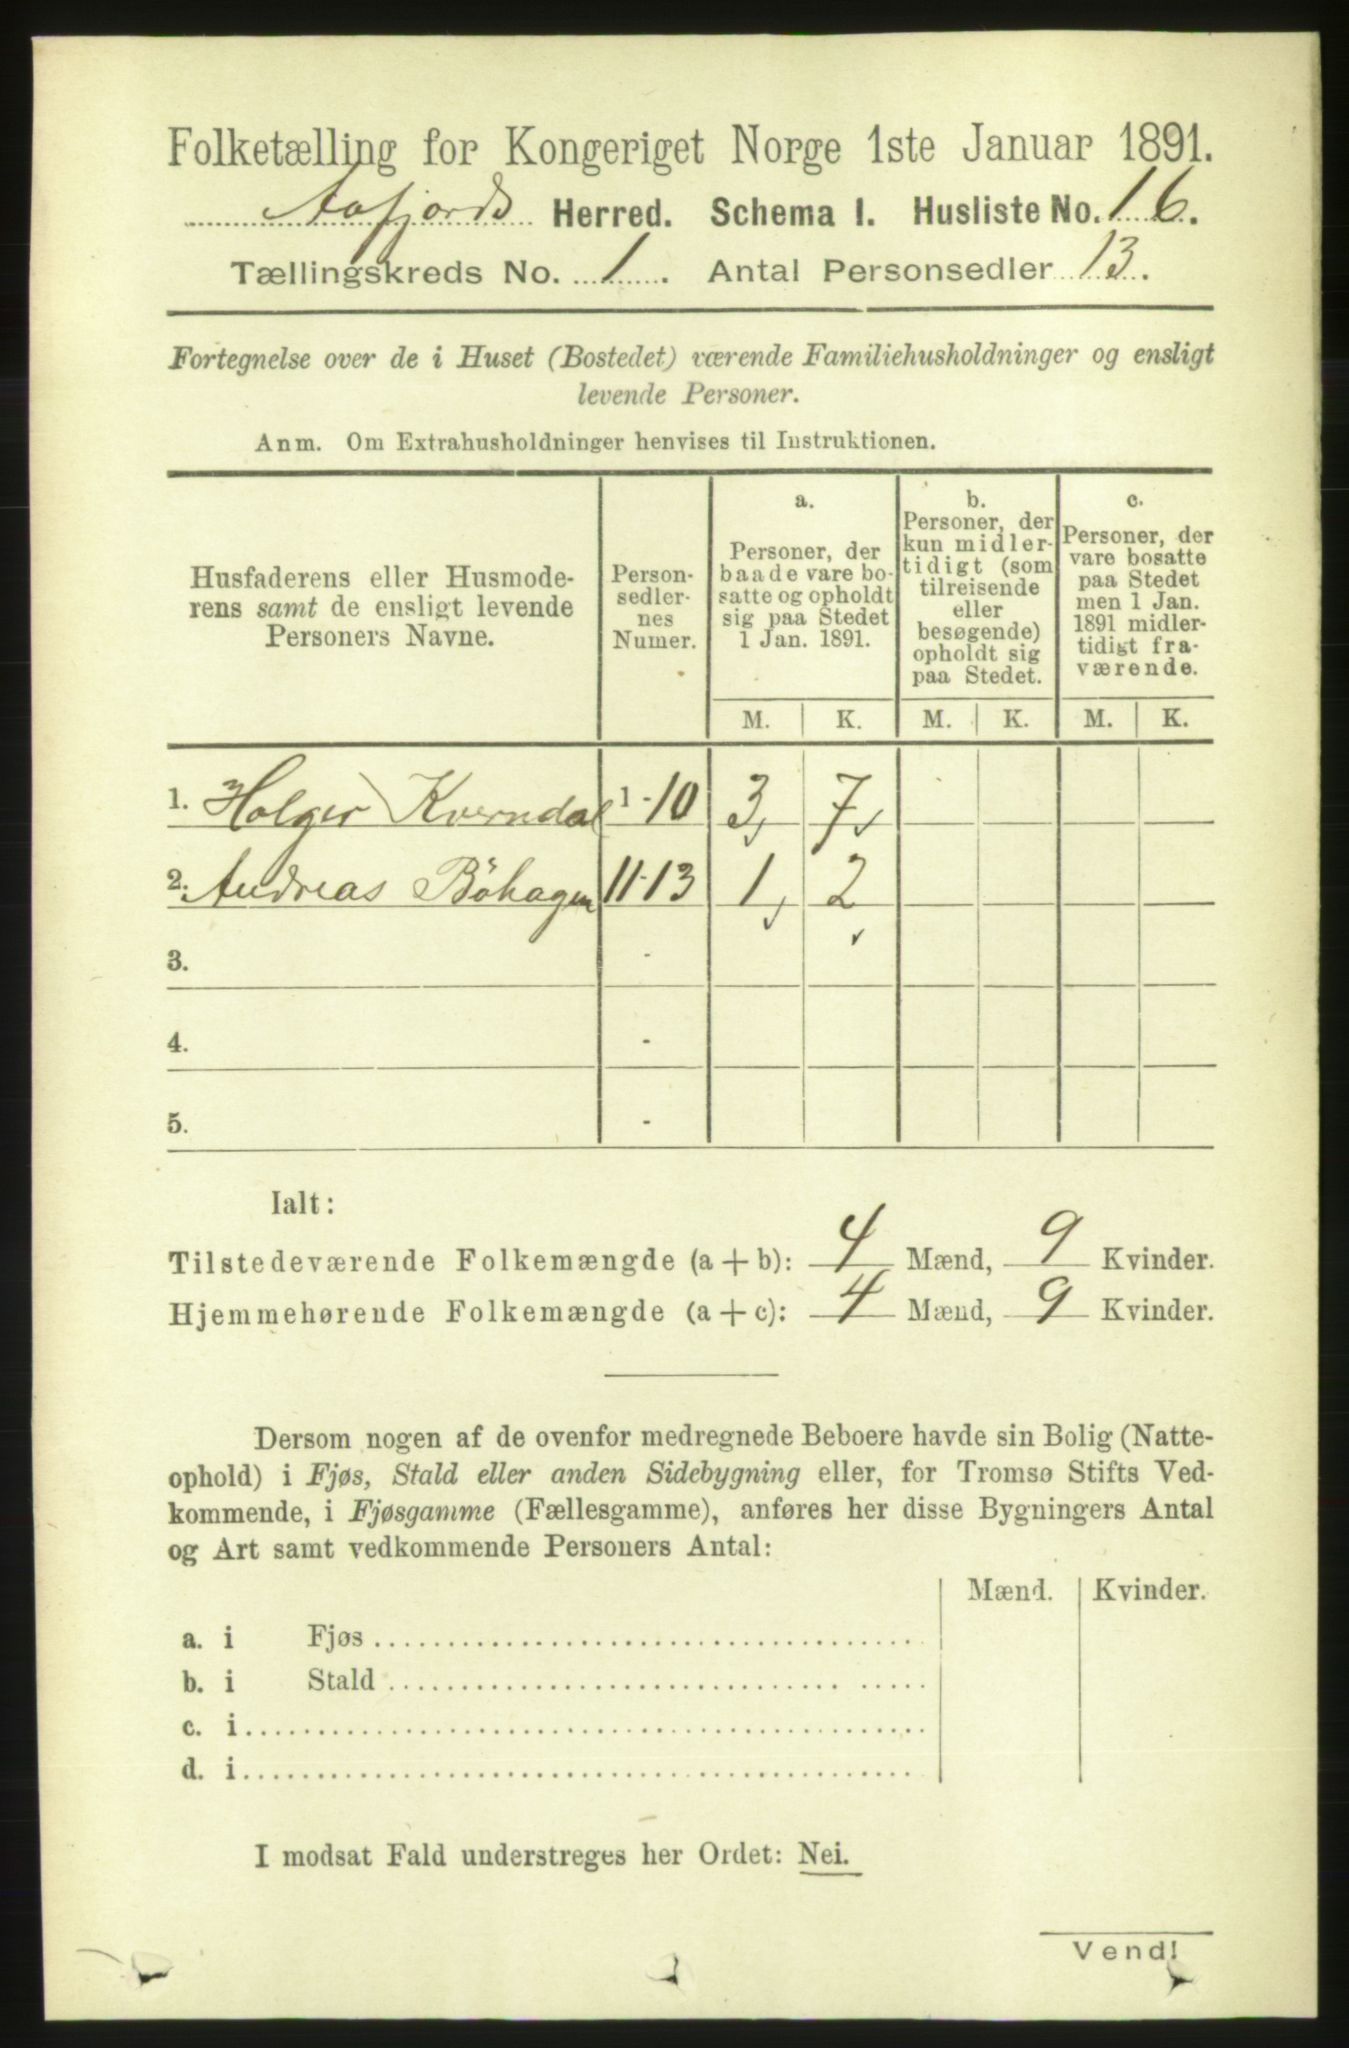 Folketælling for Kongeriget Norge 1ste Januar 1891.
Aafjords Herred. Schema I. Husliste No. 16.
Tællingskreds No. 1. Antal Personsedler 13.
Fortegnelse over de i Huset (Bostedet) værende Familiehusholdninger og ensligt
levende Personer.
Anm. Om Extrahusholdninger henvises til Instruktionen.
Husfaderens eller Husmode-
rens samt de ensligt levende
Personers Navne.
Person-
sedler-
nes
Numer.
a.
Personer, der
baade vare bo-
satte og opholdt
sig paa Stedet
1 Jan. 1891.
b.
Personer, der
kun midler-
tidigt (som
tilreisende
eller
besøgende)
opholdt sig
paa Stedet.
c.
Personer, der
vare bosatte
paa Stedet
men 1 Jan.
1891 midler-
tidigt fra-
værende.
M. K. M. K. M. K.
1. Holger Kverndal 1-10 3 7
2. Andreas Böhagen 11-13 1 2
3. -
4. -
5. -
Ialt:
Tilstedeværende Folkemængde (a+b): 4 Mænd, 9 Kvinder.
Hjemmehørende Folkemængde (a+c): 4 Mænd, 9 Kvinder.
Dersom nogen af de ovenfor medregnede Beboere havde sin Bolig (Natte-
ophold) i Fjøs, Stald eller anden Sidebygning eller, for Tromsø Stifts Ved-
kommende, i Fjøsgamme (Fællesgamme), anføres her disse Bygningers Antal
og Art samt vedkommende Personers Antal:
Mænd. Kvinder.
a. i Fjøs
b. i Stald
c. i
d. i
I modsat Fald understreges her Ordet: Nei.
Vend!